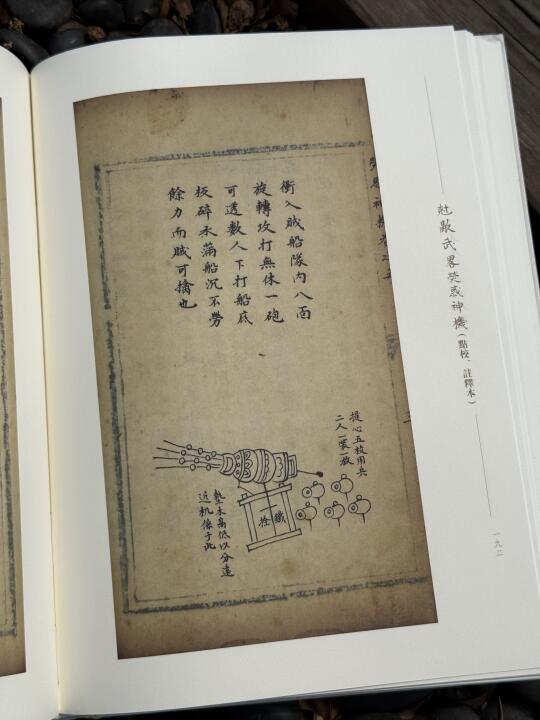 衝入賊船隊內八面
旋轉攻打無休一砲
可透數人下打船底
板碎水滿船沉不勞
餘力而賊可擒也
提心五枚用兵
二人一裝一放
鐵
墊木高低以分遠
近机像于此
尅敵武畧熒惑神機(點校、註釋本)
一九二